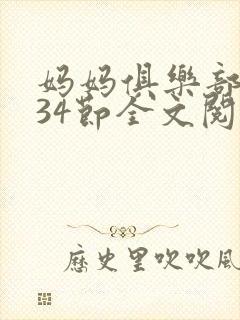 妈妈俱樂部
34節全文閱
歷史里吹吹風